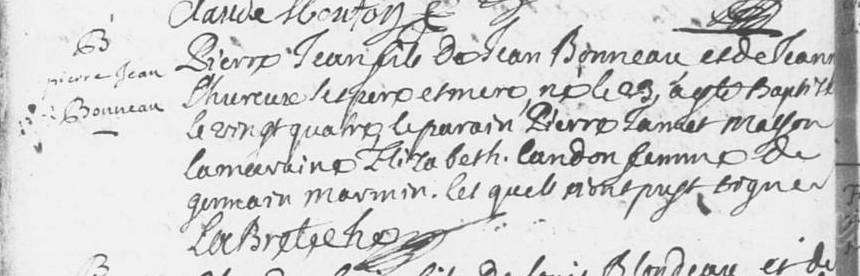 Claude Mouton
B
pierre Jean
Bonneau
Pierre Jean fils De Jean Bonneau et de Jeann
l'hureux ses pere et mere, né le 23, a esté Baptisé
le vingt quatre, le parain Pierre Masson
la maraine Elizabeth landon femme de
germain marmin. les quels n'ont pust signer
La Breteche
fils de louis Blondeau et de